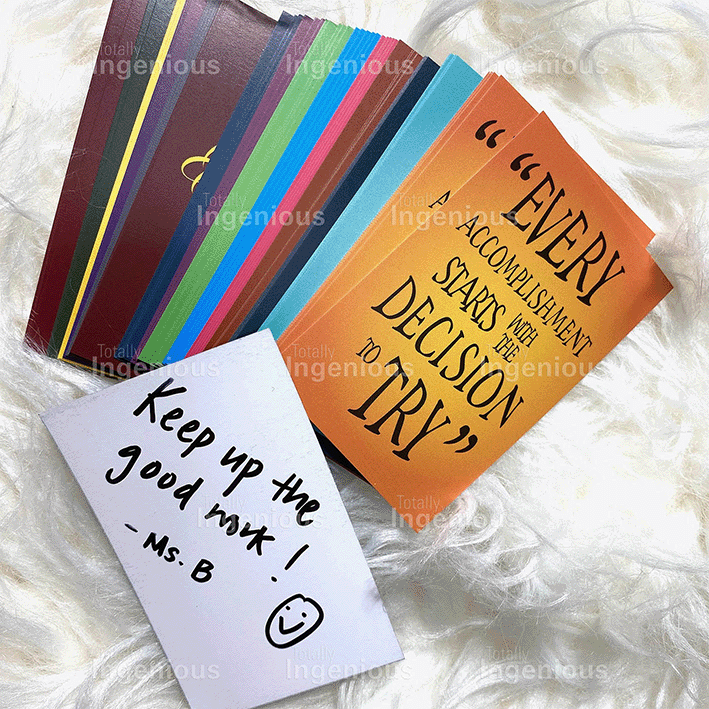 “
A
“EVERY
ACCOMPLISHMENT
STARTS WITH
THE
DECISION
TO TRY”
Keep up the
good work!
- Ms. B
Totally
Ingenious
Totally
Ingenious
Totally
Ingenious
Totally
Ingenious
Totally
Ingenious
Totally
Ingenious
Totally
Ingenious
Totally
Ingenious
Totally
Ingenious
Totally
Ingenious
Totally
Ingenious
Totally
Ingenious
Totally
Ingenious